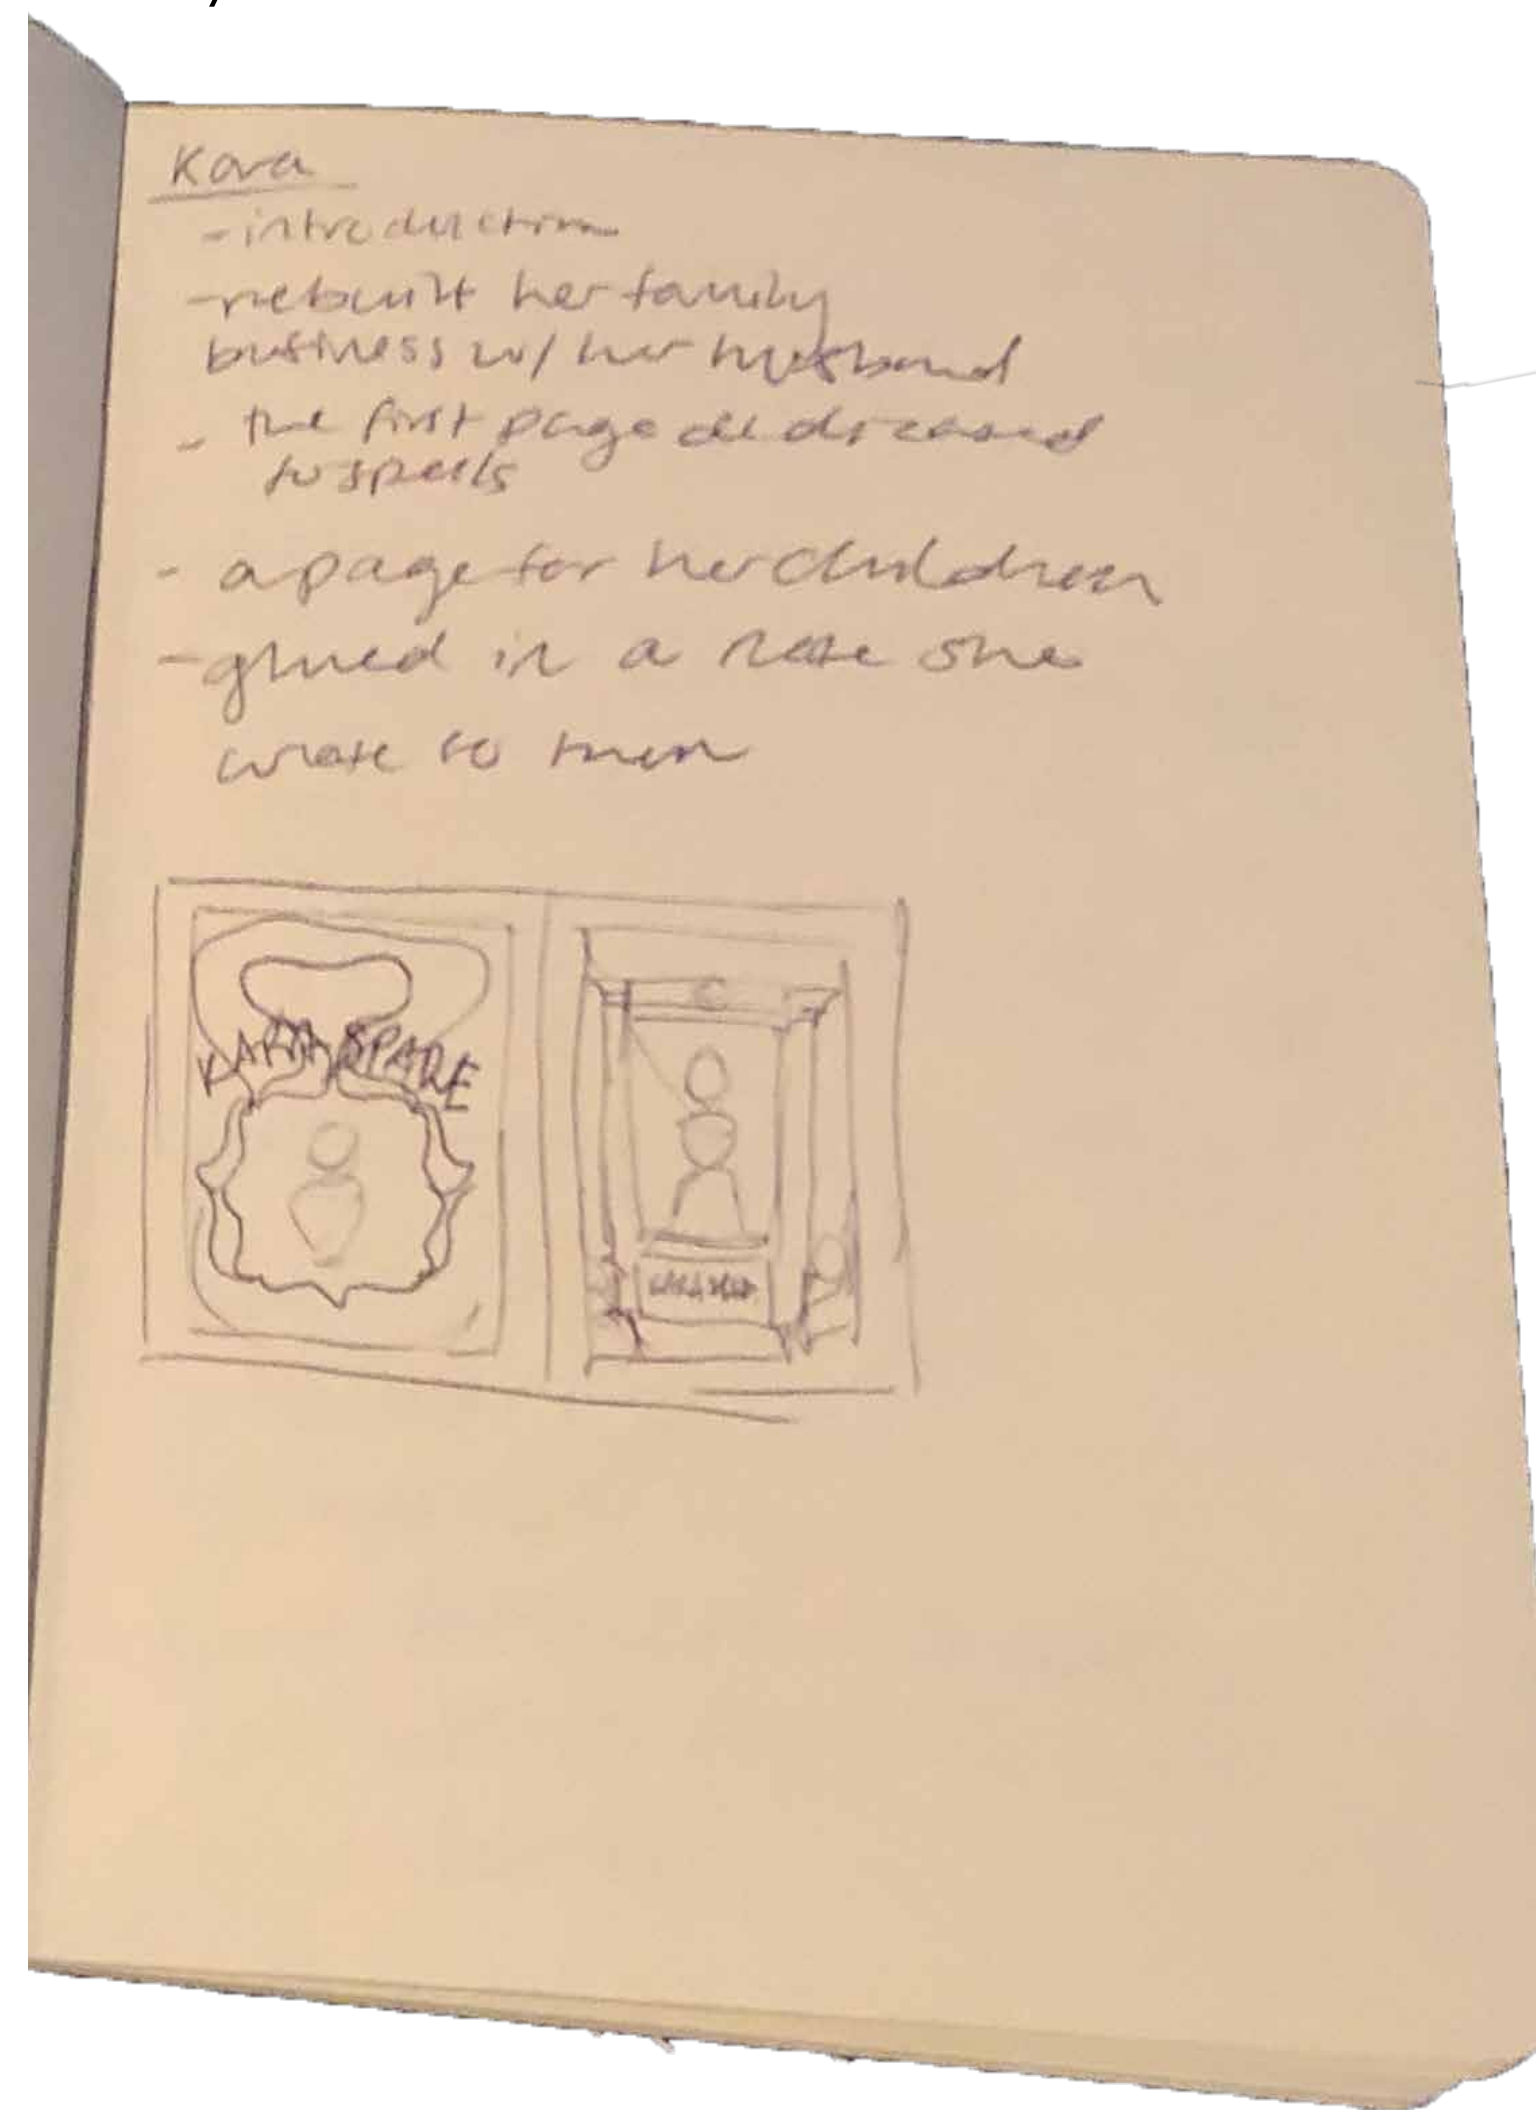 Kara
- introduction
- rebuilt her family
business w/ her husband
- the first page
to spells
- a page for her children
- glued in a note she
wrote to them
KARA SPADE